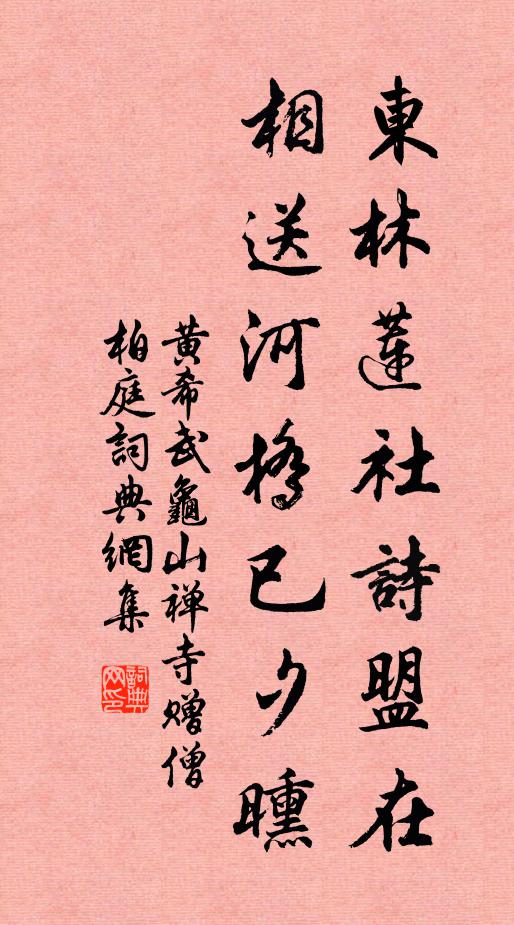 東林蓮社詩盟在
相送河橋已夕曛
黃希武龜山禅寺赠僧
柏庭詞典網集
詞典网印